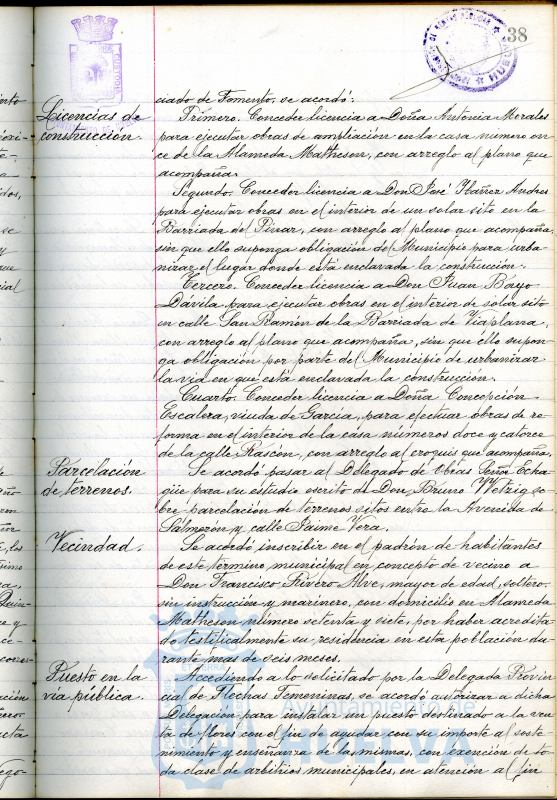 38
Licencias de
construcción.
ciado de Fomento, se acordó:
Primero. Conceder licencia a Doña Antonia Morales
para ejecutar obras de ampliación en la casa número on-
ce de la Alameda Matheson, con arreglo al plano que
acompaña.
Segundo. Conceder licencia a Don José Ibáñez Andres
para ejecutar obras en el interior de un solar sito en la
Barriada del Pinar, con arreglo al plano que acompaña,
sin que ello suponga obligación del Municipio para urba-
nizar el lugar donde está enclavada la construcción.
Tercero. Conceder licencia a Don Juan
Dávila para ejecutar obras en el interior de solar sito
en calle San Ramón de la Barriada de Viaplana,
con arreglo al plano que acompaña, sin que ello supon-
ga obligación por parte del Municipio de urbanizar
la via en que está enclavada la construcción.
Cuarto. Conceder licencia a Doña Concepción
Escalera, viuda de Garcia, para efectuar obras de re-
forma en el interior de la casa números doce y catorce
de la calle Rascón, con arreglo al croquis que acompaña.
Parcelación
de terrenos.
Se acordó pasar al Delegado de Obras Señor Echa-
güe para su estudio escrito de Don Bruno Wetzig so-
bre parcelación de terrenos sitos entre la Avenida de
Salmerón y calle Jaime Vera.
Vecindad.
Se acordó inscribir en el padrón de habitantes
de este término municipal en concepto de vecino a
Don Francisco Rivero Alve, mayor de edad, soltero,
sin instrucción y marinero, con domicilio en Alameda
Matheson número setenta y siete, por haber acredita-
do testificalmente su residencia en esta población du-
rante mas de seis meses.
Puesto en la
vía pública.
Accediendo a lo solicitado por la Delegada Provin-
cial de Flechas Femeninas, se acordó autorizar a dicha
Delegación para instalar un puesto destinado a la ven-
ta de flores con el fin de ayudar con su importe al soste-
nimiento y enseñanza de la mismas, con exención de to-
da clase de arbitrios municipales, en atención al fin
Ayuntamiento de